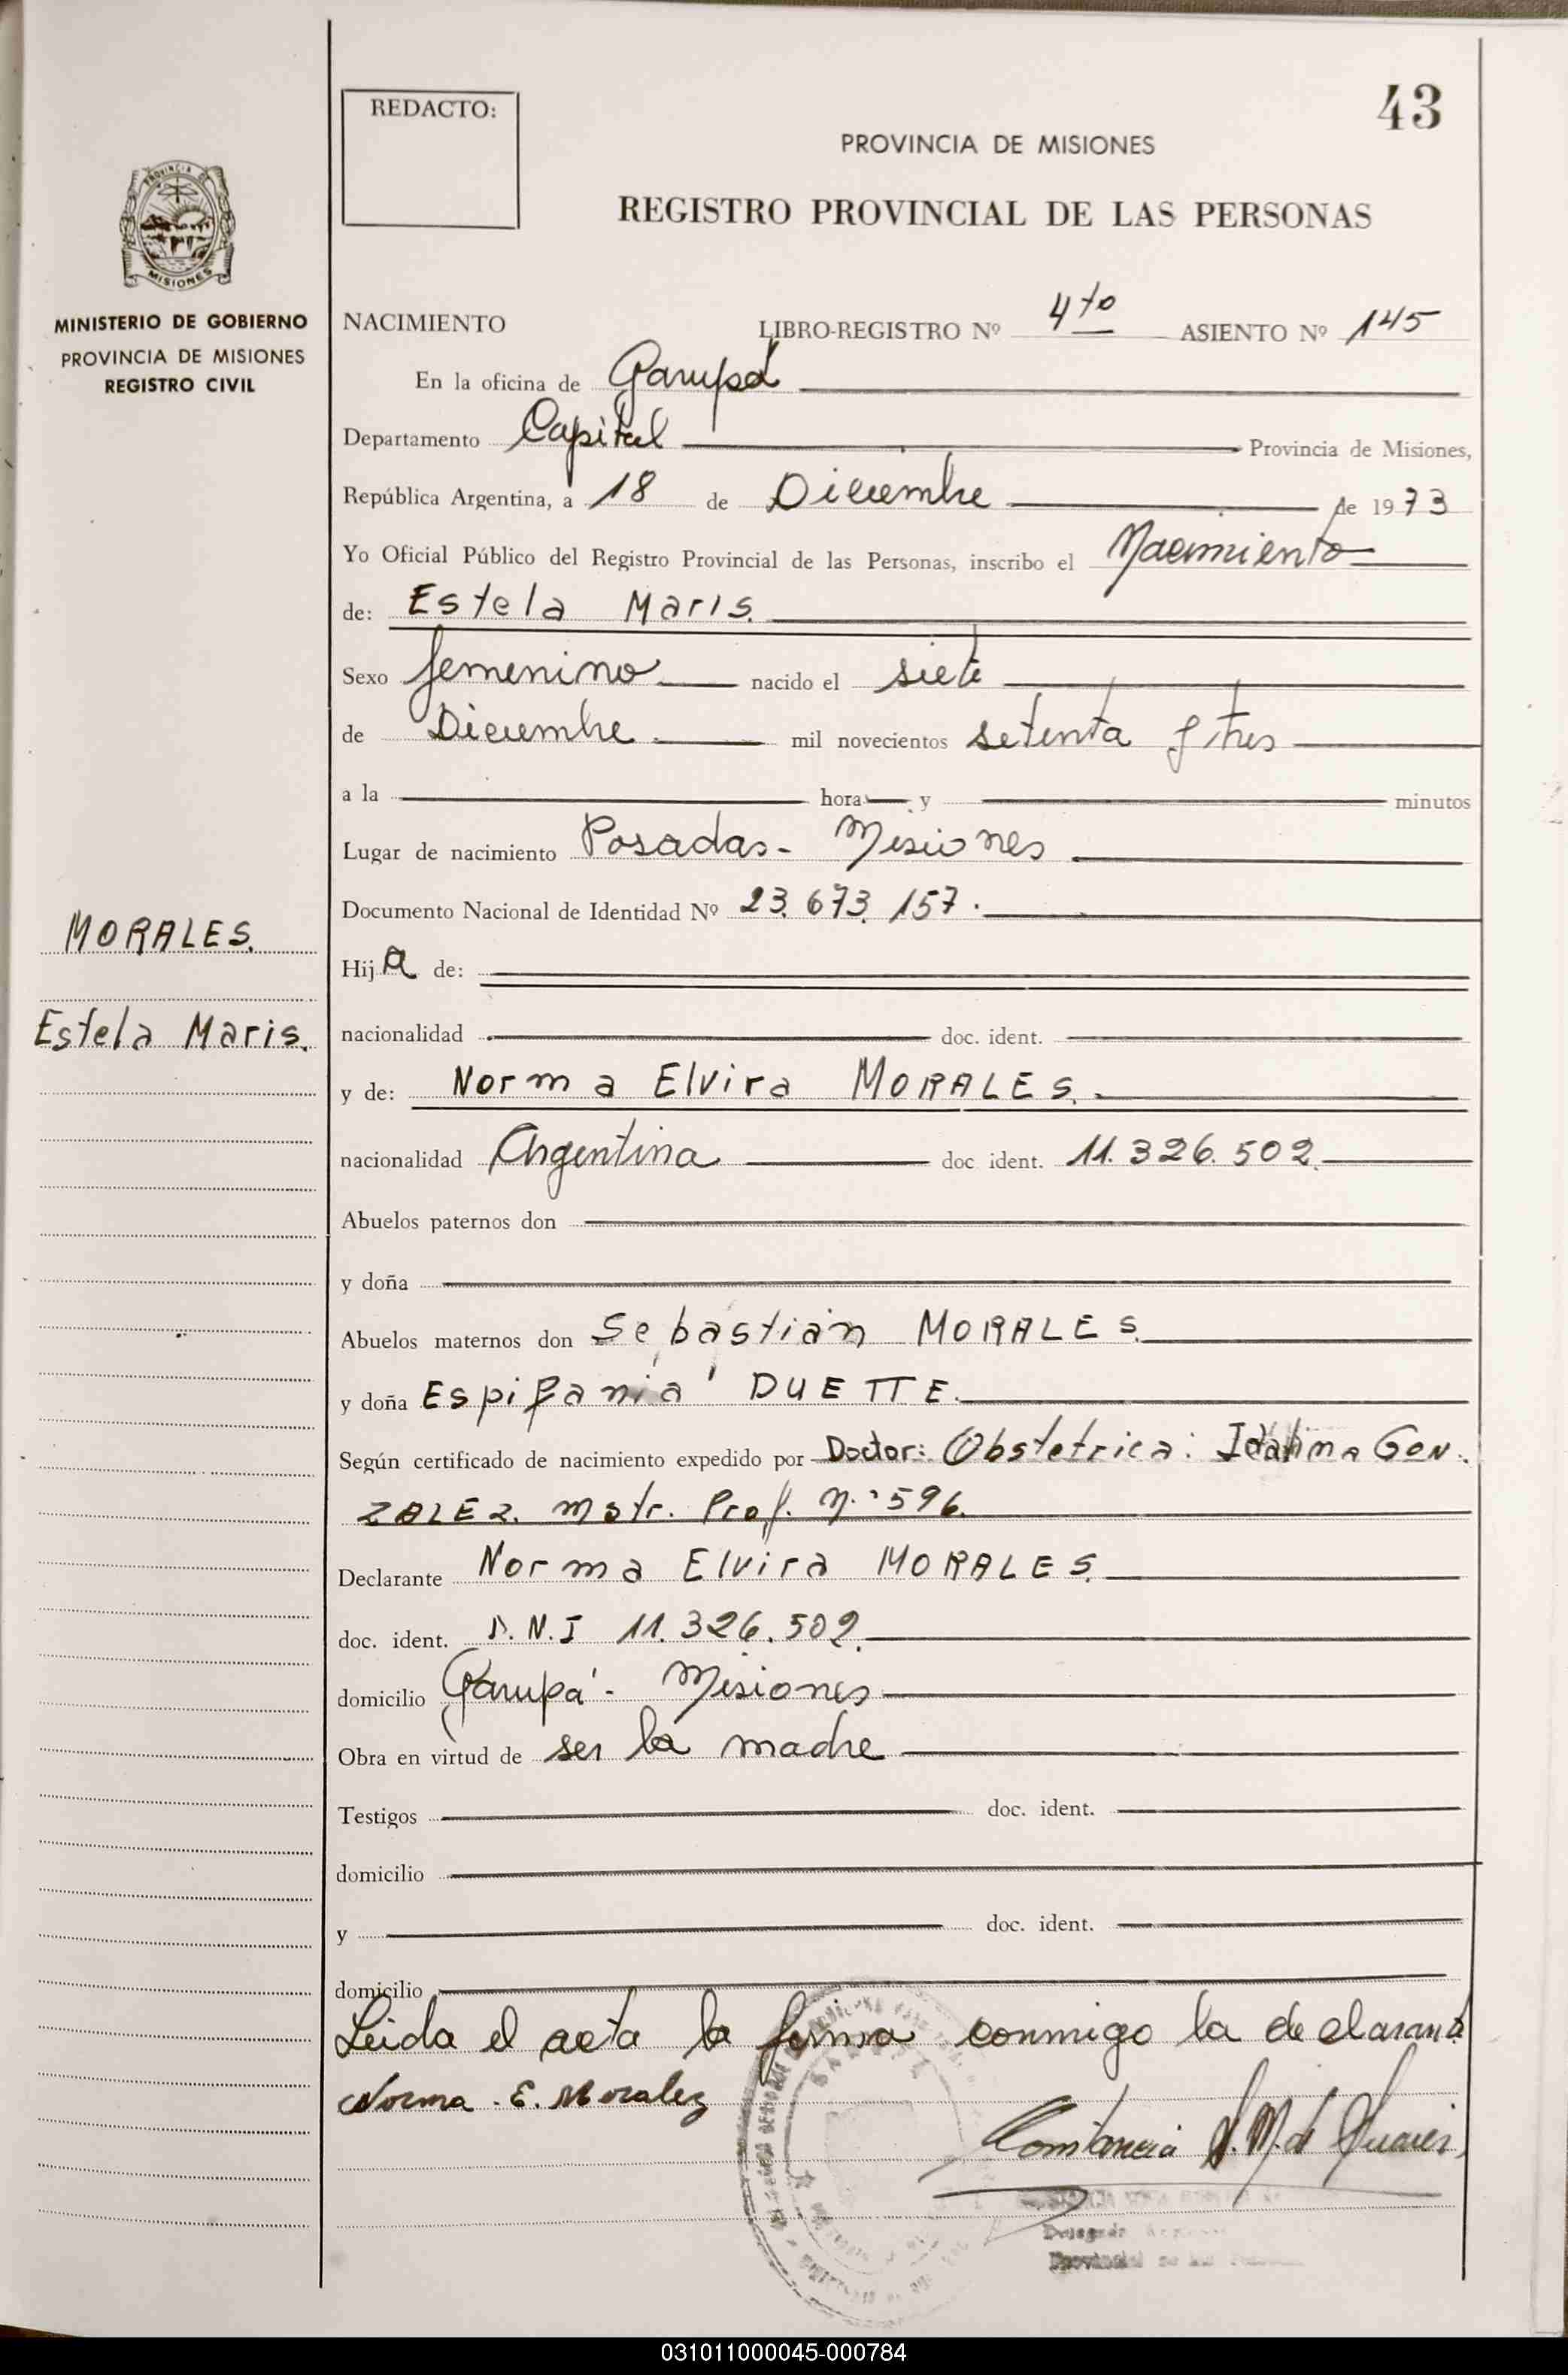 43
REDACTO:
PROVINCIA DE MISIONES
REGISTRO PROVINCIAL DE LAS PERSONAS
PROVINCIA DE
MISIONES
MINISTERIO DE GOBIERNO
PROVINCIA DE MISIONES
REGISTRO CIVIL
NACIMIENTO LIBRO-REGISTRO Nº 4to ASIENTO Nº 145
En la oficina de Garupá
Departamento Capital Provincia de Misiones,
República Argentina, a 18 de Diciembre de 1973
Yo Oficial Público del Registro Provincial de las Personas, inscribo el Nacimiento
de: Estela Maris.
Sexo femenino nacido el siete
de Diciembre. mil novecientos setenta y tres
a la hora y minutos
Lugar de nacimiento Posadas - Misiones
Documento Nacional de Identidad Nº 23.673.157.
MORALES.
Hija de:
Estela Maris.
nacionalidad doc. ident.
y de: Norma Elvira MORALES.
nacionalidad Argentina doc ident. 11.326.502.
Abuelos paternos don
y doña
Abuelos maternos don Sebastián MORALES.
y doña Espifania DUETTE.
Según certificado de nacimiento expedido por Doctor: Obstetrica: GON.
ZALEZ. Matr. Prof. N.º 596.
Declarante Norma Elvira MORALES.
doc. ident. D.N.I 11.326.502.
domicilio Garupá - Misiones
Obra en virtud de ser la madre
Testigos doc. ident.
domicilio
y doc. ident.
domicilio
Leida el acta la firma conmigo la declarante
Norma . E. Morales
Constancia
Provincial
031011000045-000784